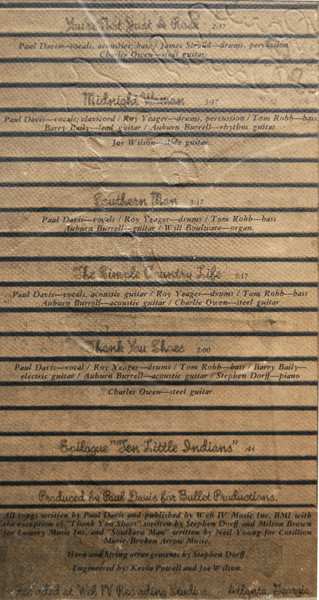 You're Not Just A Rose 2:37
Paul Davis—vocals, acoustics, bass / James Stroud—drums, percussion
Charlie Owen—steel guitar
Midnight Woman 3:17
Paul Davis—vocals, clavicord / Roy Yeager—drums, percussion / Tom Robb—bass
Barry Baily—lead guitar / Auburn Burrell—rhythm guitar
Joe Wilson—slide guitar
Southern Man 5:17
Paul Davis—vocals / Roy Yeager—drums / Tom Robb—bass
Auburn Burrell—guitar / Will Boulware—organ
The Simple Country Life
Paul Davis—vocals, acoustic guitar / Roy Yeager—drums / Tom Robb—bass
Auburn Burrell—acoustic guitar / Charlie Owen—steel guitar
Thank You Shoes 2:00
Paul Davis—vocal / Roy Yeager—drums / Tom Robb—bass / Barry Baily—
electric guitar / Auburn Burrell—acoustic guitar / Stephen Dorff—piano
Charlie Owen—steel guitar
Epilogue "Ten Little Indians" :44
Produced by Paul Davis for Bullet Productions.
All songs written by Paul Davis and published by Web IV Music Inc. BMI with
the exception of "Thank You Shoes" written by Stephen Dorff and Milton Brown
for Lowery Music Inc. and "Southern Man" written by Neil Young for Cotillion
Music/Broken Arrow Music.
Horn and string arrangements by Stephen Dorff.
Engineered by: Kevin Powell and Joe Wilson.
Recorded at Web IV Recording Studios Atlanta, Georgia